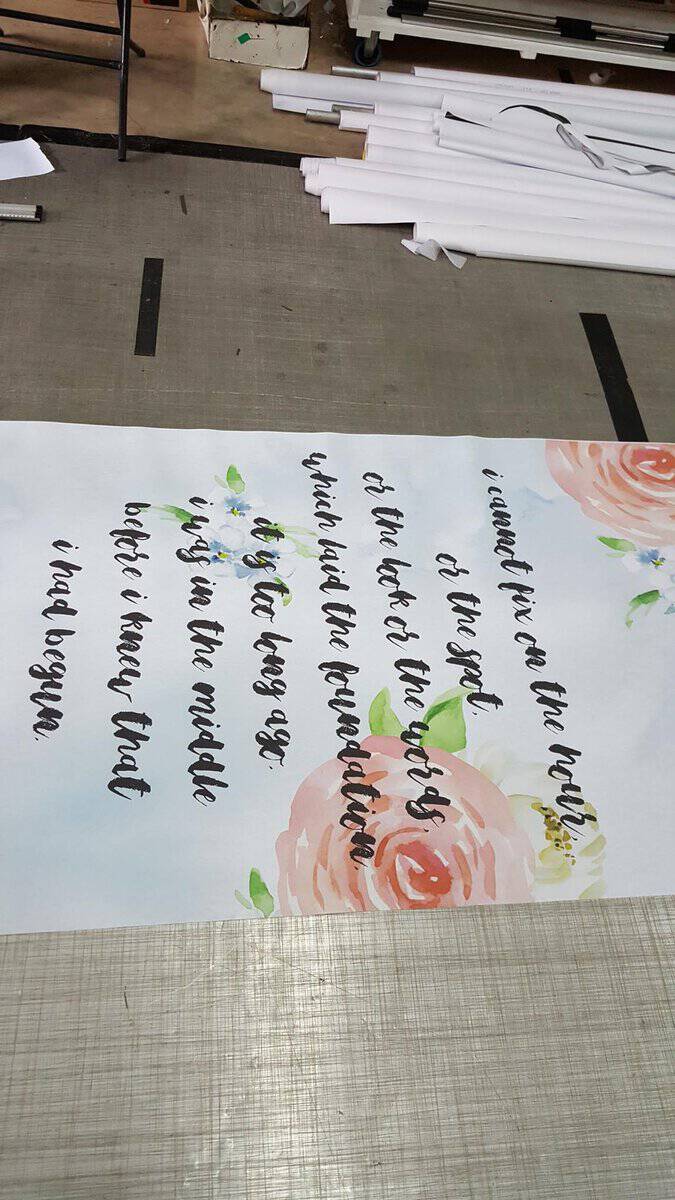 i cannot fix on the hour,
or the spot,
or the look or the words,
which laid the foundation.
it is too long ago.
i was in the middle
before i knew that
i had begun.